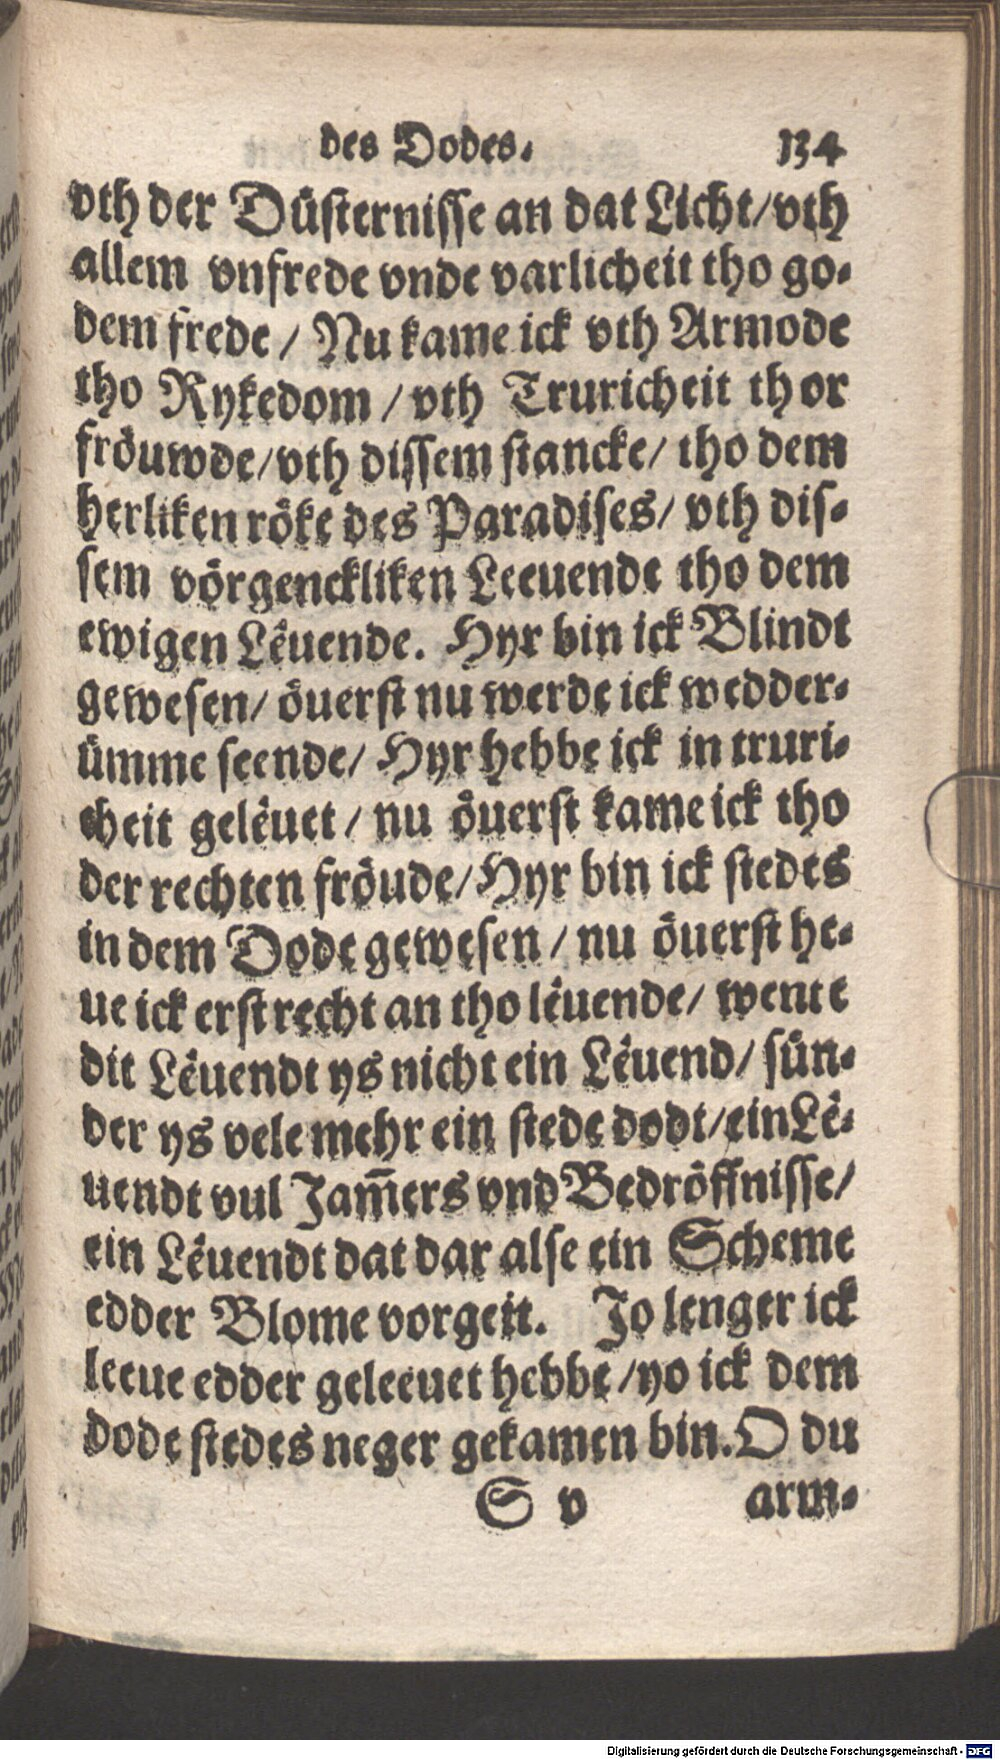 des Dodes. 134
vth der Düsternisse an dat Licht/vth
allem vnfrede vnde varlicheit tho go-
dem frede / Nu kame ick vth Armode
tho Rykedom / vth Truricheit thor
fröuwde/vth dissem stancke/ tho dem
herliken röke des Paradises/ vth dis-
sem vörgenckliken Leeuende tho dem
ewigen Lêuende. Hyr bin ick Blindt
gewesen/ öuerst nu werde ick wedder-
ümme seende/ Hyr hebbe ick in truri-
cheit gelêuet / nu öuerst kame ick tho
der rechten fröude/Hyr bin ick stedes
in dem Dode gewesen / nu öuerst he-
ue ick erst recht an tho lêuende/ wente
dit Lêuendt ys nicht ein Lêuend/ sün-
der ys vele mehr ein stede dodt/einLê-
uendt vul Jam̃ers vnd Bedröffnisse/
ein Lêuendt dat dar alse ein Scheme
edder Blome vorgeit. Jo lenger ick
leeue edder geleeuet hebbe /yo ick dem
dode stedes neger gekamen bin. O du
S v arm-
Digitalisierung gefördert durch die Deutsche Forschungsgemeinschaft - DFG